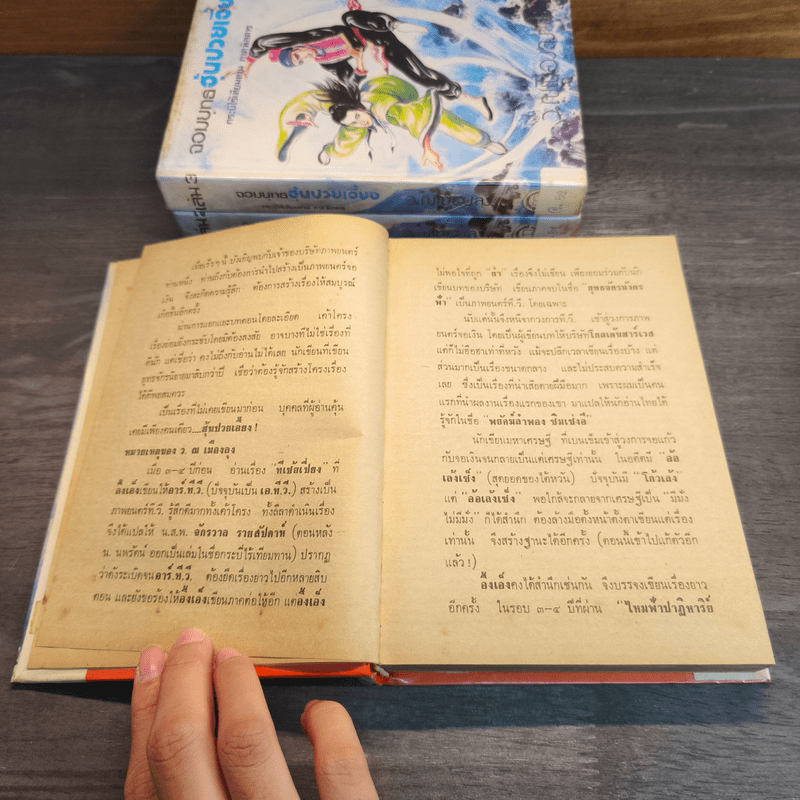 จอมยุทธฮุ้นปวยเอี้ยง
กระบี่ไร้เทียมทาน ภาคพิสดาร
จอมยุทธฮุ้นปวยเอี้ยง
เล่ม 3
เมื่อเร็วๆ นี้ บังเอิญพบกับเจ้าของบริษัทภาพยนตร์
ท่านหนึ่ง ท่านถึงกับต้องการนำไปสร้างเป็นภาพยนตร์จอ
เงิน จึงสะกิดความรู้สึก ต้องการสร้างเรื่องให้สมบูรณ์
เกิดขึ้นอีกครั้ง
ผ่านการแยกแยะบทตอนโดยละเอียด เค้าโครง
เรื่องย่อมยิ่งกระชับโดยมิต้องสงสัย อาจบางทีไม่ใช่เรื่องที่
ดีนัก แต่เชื่อว่า คงไม่ถึงกับอ่านไม่ได้เลย นักเขียนที่เขียน
ยุทธจักรนิยายมาสิบกว่าปี เชื่อว่าต้องรู้จักสร้างโครงเรื่อง
ได้ดีพอสมควร
เป็นเรื่องที่ไม่เคยเขียนมาก่อน บุคคลที่ผู้อ่านคุ้น
เคยมีเพียงคนเดียว....ฮุ้นปวยเอี้ยง !
หมายเหตุของ ว. ณ เมืองลุง
เมื่อ ๓-๔ ปีก่อน อ่านเรื่อง "ทีเช้ยเปี่ยง" ที่
อึ้งเอ็งเขียนให้อาร์.ที.วี. (ปัจจุบันเป็น เอ.ที.วี.) สร้างเป็น
ภาพยนตร์ที.วี. รู้สึกมีฉากทั้งเค้าโครง ทั้งลีลาดำเนินเรื่อง
จึงได้แปลให้ น.ส.พ. จักรวาล รายสัปดาห์ (ตอนหลัง
น. นพรัตน์ ออกเป็นเล่มในชื่อกระบี่ไร้เทียมทาน) ปรากฏ
ว่าดังระเบิดจนอาร์.ที.วี. ต้องยืดเรื่องยาวไปอีกหลายสิบ
ตอน และยังขอร้องให้อึ้งเอ็งเขียนภาคต่อให้อีก แต่อึ้งเอ็ง
ไม่พอใจที่ถูก "ล้ำ" เรื่องจึงไม่เขียน เพื่อยอมร่วมกับนัก
เขียนบทของบริษัท เขียนภาคจบในชื่อ "ยุทธจักรมังกร
ฟ้า" เป็นภาพยนตร์ที.วี. โดยเฉพาะ
นับแต่นั้นจึงหนีจากวงการที.วี. เข้าสู่วงการภาพ
ยนตร์จอเงิน โดยเป็นผู้เขียนบทให้บริษัทโกลเด้นฮาร์เวส
แต่ก็ไม่ฮือฮาเท่าที่หวัง แม้จะปลีกเวลาเขียนเรื่องบ้าง แต่
ส่วนมากเป็นเรื่องขนาดกลาง และไม่ประสบความสำเร็จ
เลย ซึ่งเป็นเรื่องที่น่าเสียดายฝีมือมาก เพราะผมเป็นคน
แรกที่นำผลงานเรื่องแรกของเขา มาแปลให้นักอ่านไทยได้
รู้จักในชื่อ "พยัคฆ์ลำพอง ซิมเซ่งอี"
นักเขียนมหาเศรษฐี ที่เบนเข็มเข้าสู่วงการจอแก้ว
กับจอเงินจนกลายเป็นแต่เศรษฐีเท่านั้น ในอดีตมี "อ้อ
เล้งเซ็ง" (สุดยอดของไต้หวัน) ปัจจุบันมี "โกวเล้ง"
แต่ "อ้อเล้งเซ็ง" พอใกล้จะกลายจากเศรษฐีเป็น "มีมั่ง
ไม่มีมั่ง" ก็ได้สำนึก ต้องล้างมือตั้งหน้าตั้งตาเขียนแต่เรื่อง
เท่านั้น จึงสร้างฐานะได้อีกครั้ง (ตอนนี้เข้าไปแก้ตัวอีก
แล้ว !)
อึ้งเอ็งคงได้สำนึกเช่นกัน จึงบรรจงเขียนเรื่องยาว
อีกครั้ง ในรอบ ๓-๔ ปีที่ผ่าน "ไหมฟ้าปาฏิหาริย์